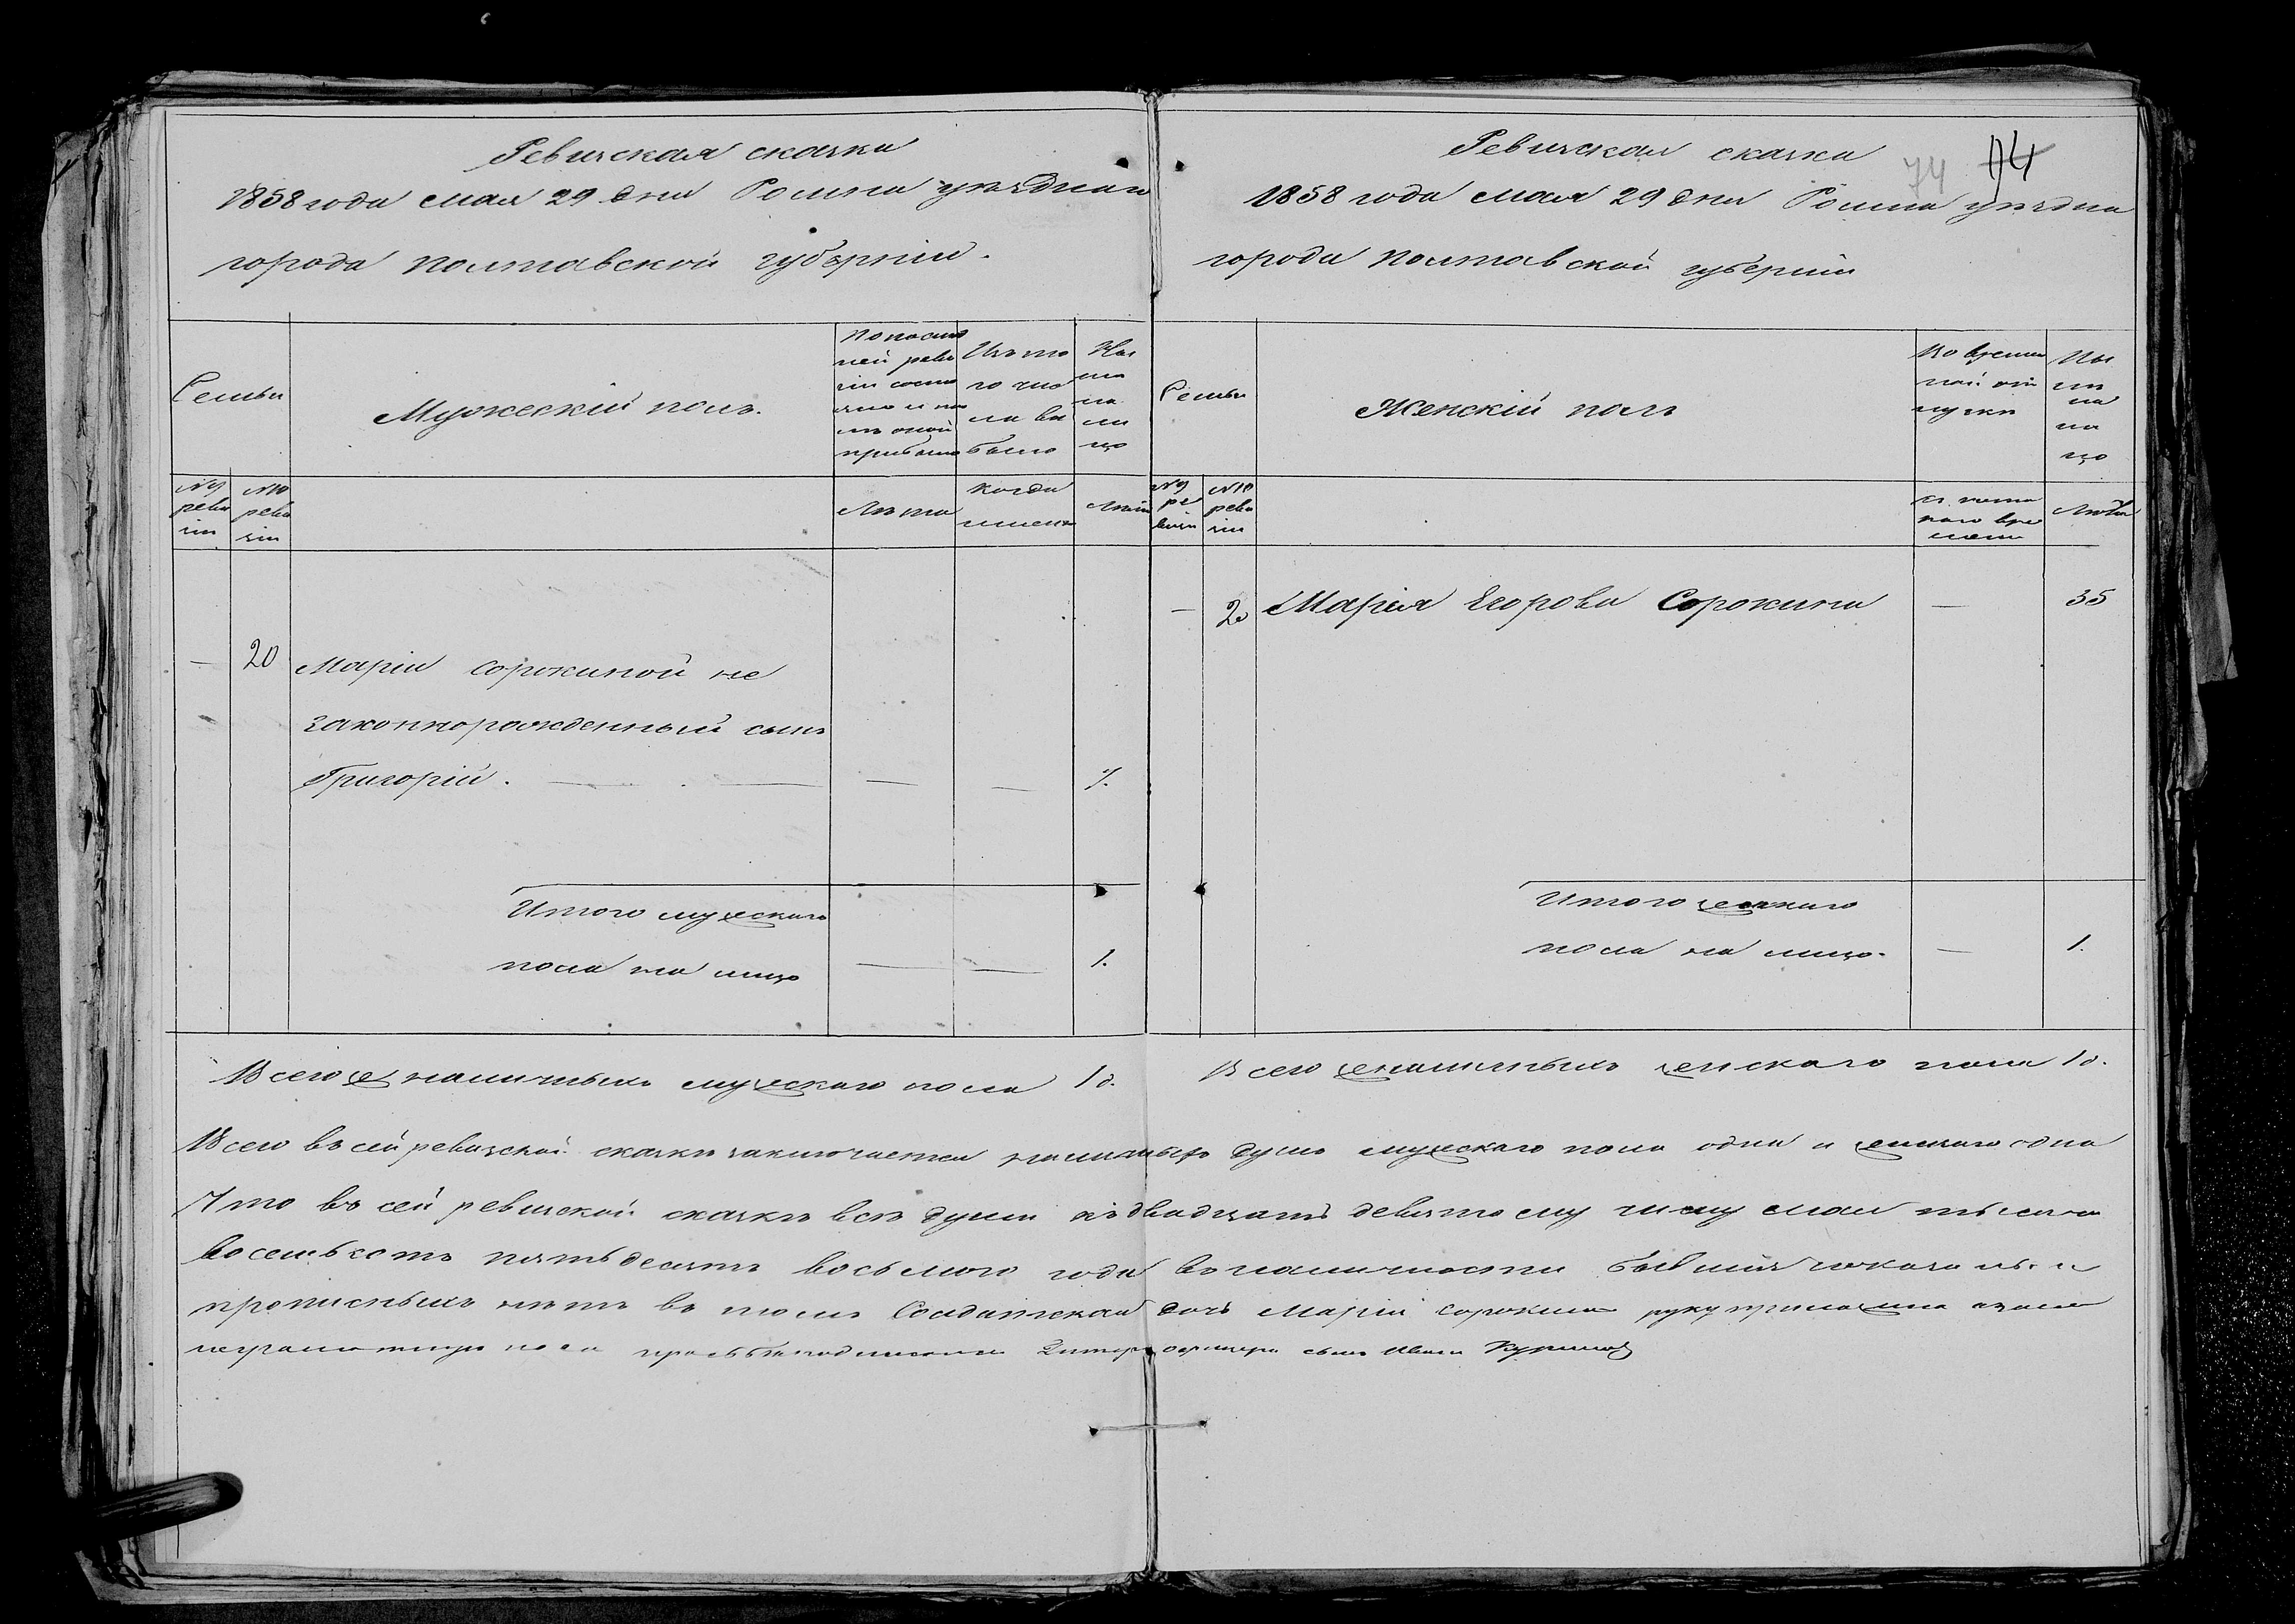 Ревизская сказка
1858 года мая 29 дня Ромна уезднаго
города Полтавской губерніи.
Семьи
Мужескій полъ.
По послѣд
ней реви
зіи состо
яло и по
слѣ оной
прибыло
Изъ то
го чис
ла вы
было
Ны
нѣ
на
ли
цо
№ 9 реви зіи
№ 10 реви зіи
Лѣта
когда имено
Лѣта
— 20 Маріи Сорокиной не
законнорожденный сынъ
Григорій. — — — 7.
Итого мужескаго
пола на лицо — — 1.
Всего же наличныхъ мужескаго пола 1 д.
74 74
Ревизская сказка
1858 года мая 29 дня Ромна уездна
города Полтавской губерніи
Семьи
Женскій полъ
Во времен
ной от
лучкѣ
Ны
нѣ
на
ли
цо
№ 9 ре визіи
№ 10 реви зіи
съ котораго вре мени
Лѣта
— 20 Марія Егорова Сорокина — 35
Итого женскаго
пола на лицо. — 1.
Всего же наличныхъ женскаго пола 1 д.
Всего въ сей ревизской сказкѣ заключается наличныхъ душъ мужескаго пола одна и женскаго одна
Что въ сей ревизской сказкѣ всѣ души къ двадцать девятому числу мая тысяча
восемьсотъ пятьдесятъ восьмого года въ наличности бывшія показаны и
прописныхъ нѣтъ въ томъ Солдатская дочь Марія Сорокина руку приложила а за нее
неграмотную по ея прозьбѣ подписался Унтеръ офицера сынъ Иванъ